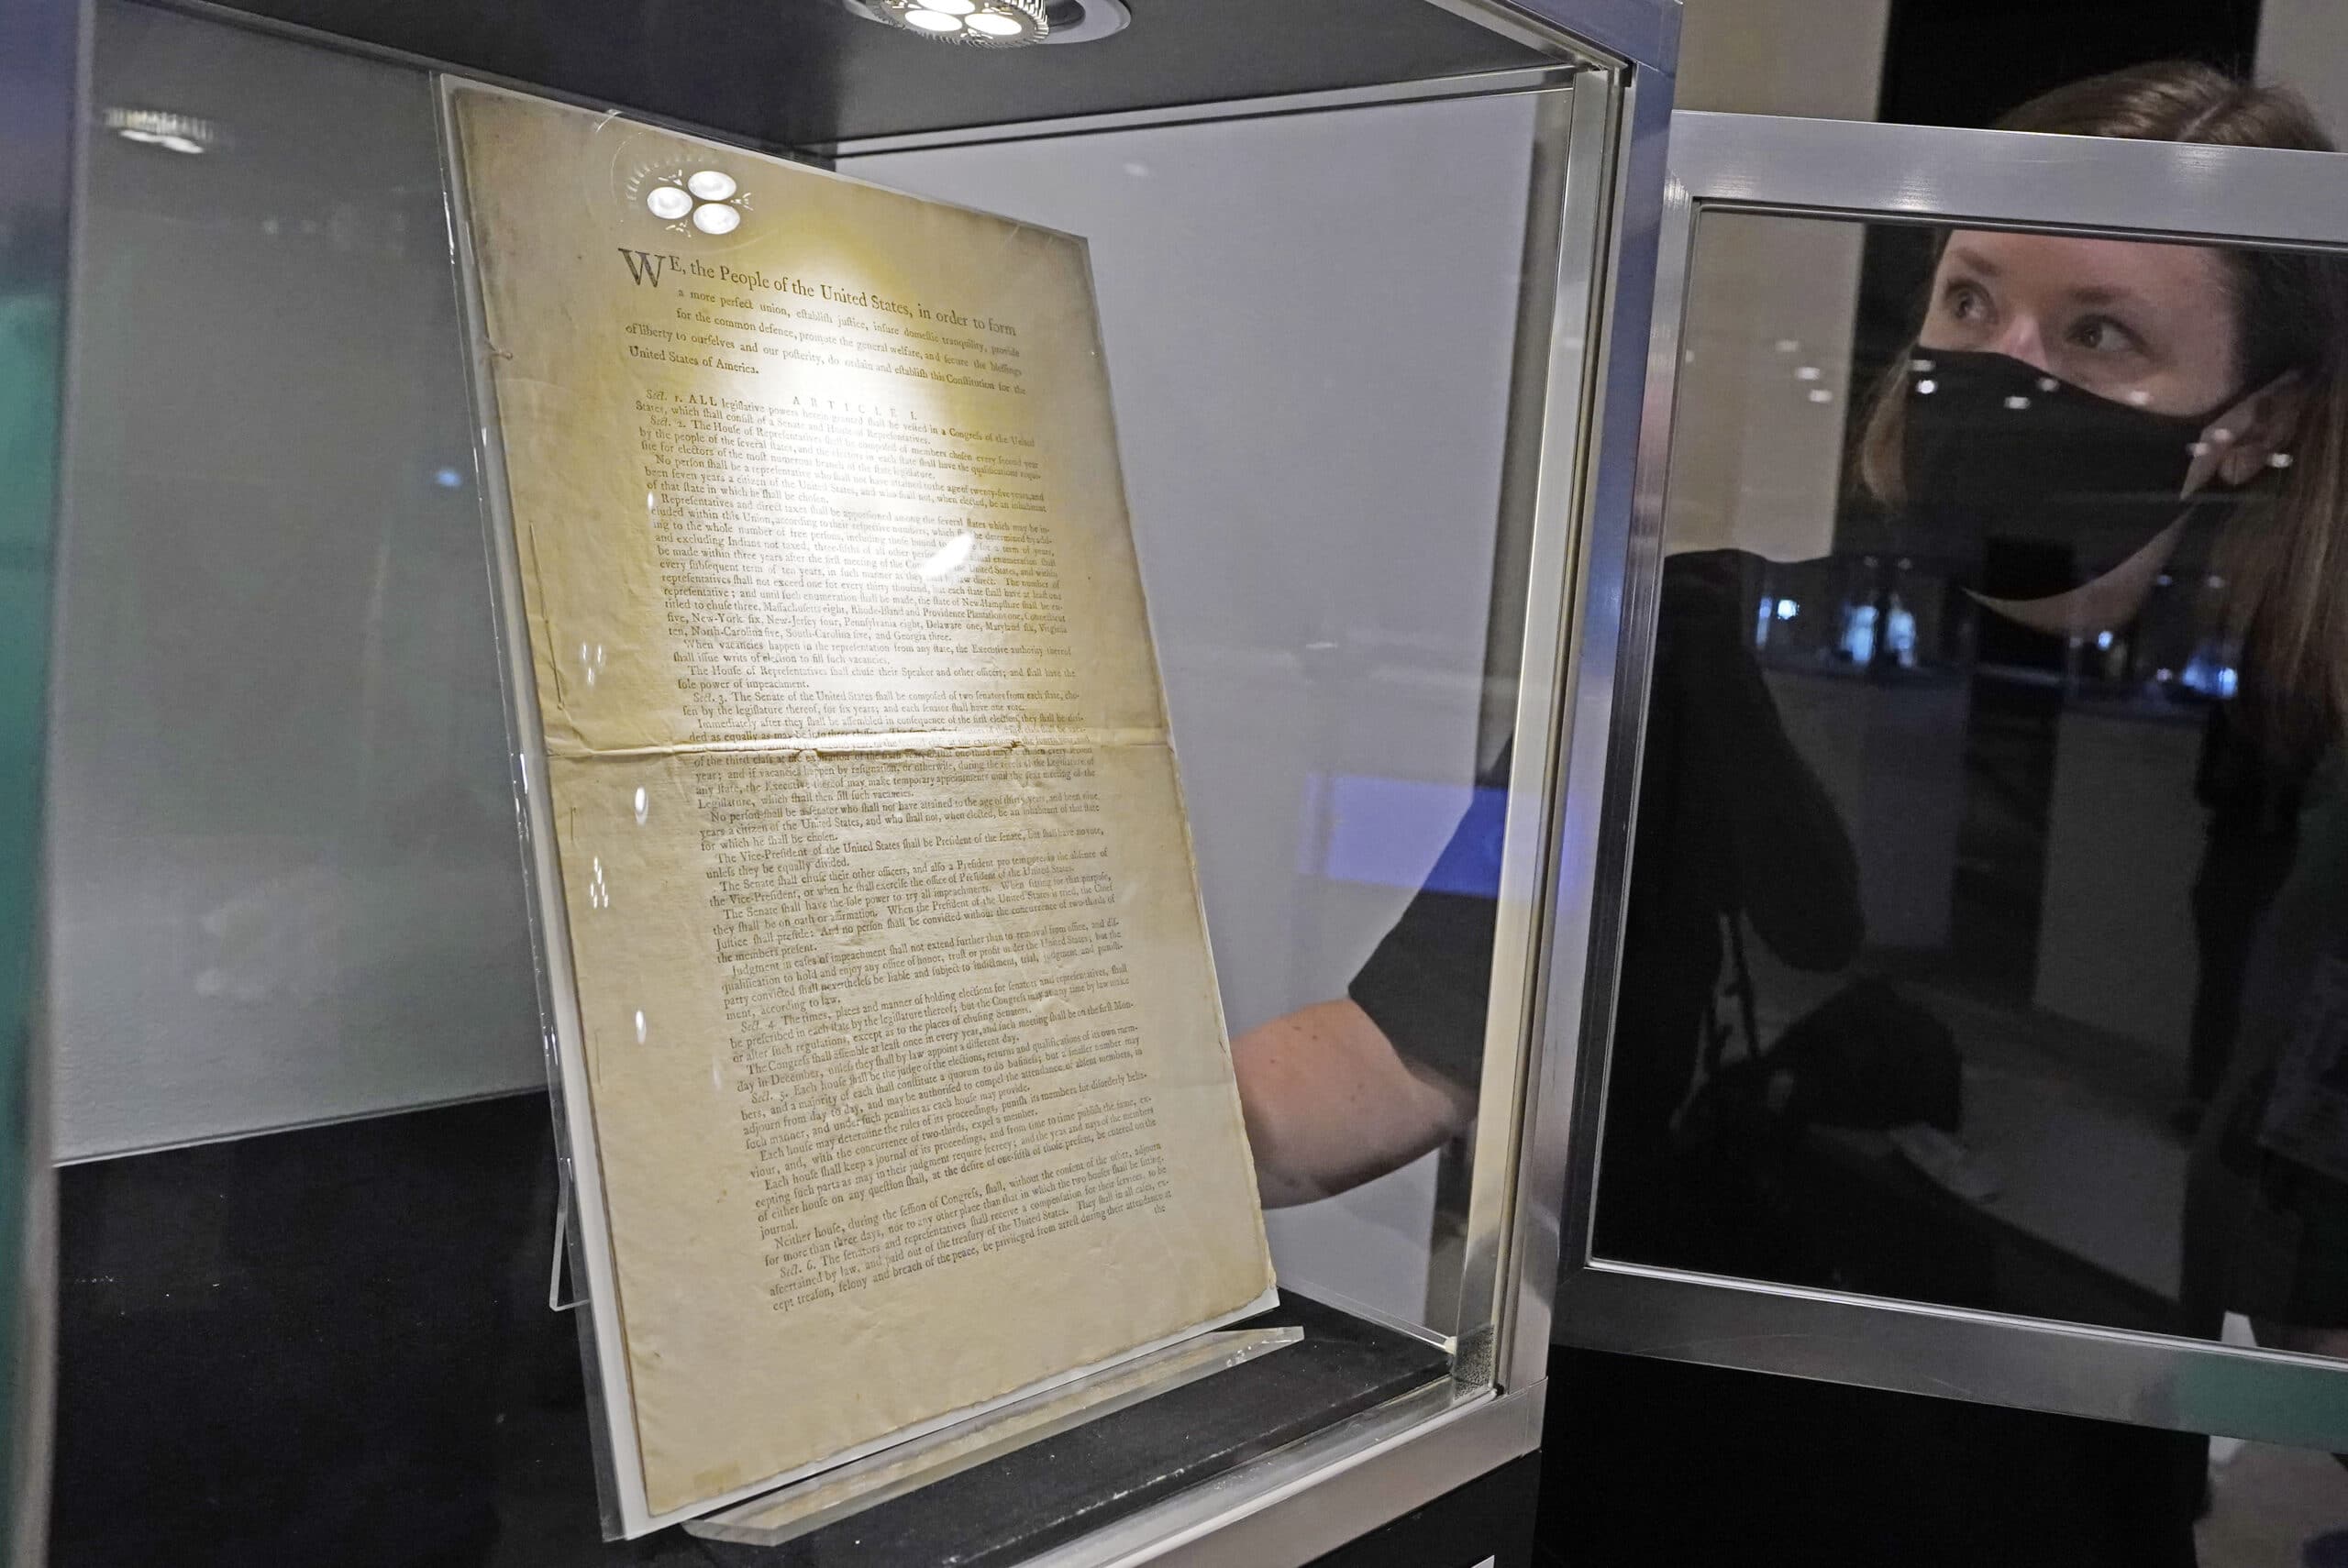 WE, the People of the United States, in order to form
a more perfect union, eſtabliſh juſtice, inſure domeſtic tranquility, provide
for the common defence, promote the general welfare, and ſecure the bleſſings
of liberty to ourſelves and our poſterity, do ordain and eſtabliſh this Conſtitution for the
United States of America.
ARTICLE I.
Sect. 1. ALL legiſlative powers herein granted ſhall be veſted in a Congreſs of the United
States, which ſhall conſiſt of a Senate and Houſe of Repreſentatives.
Sect. 2. The Houſe of Repreſentatives ſhall be compoſed of members choſen every ſecond year
by the people of the ſeveral ſtates, and the electors in each ſtate ſhall have the qualifications requi-
ſite for electors of the moſt numerous branch of the ſtate legiſlature.
No perſon ſhall be a repreſentative who ſhall not have attained to the age of twenty-five years, and
been ſeven years a citizen of the United States, and who ſhall not, when elected, be an inhabitant
of that ſtate in which he ſhall be choſen.
Repreſentatives and direct taxes ſhall be apportioned among the ſeveral ſtates which may be in-
cluded within this Union, according to their reſpective numbers, which ſhall be determined by add-
ing to the whole number of free perſons, including thoſe bound to for a term of years,
and excluding Indians not taxed, three-fifths of all other perſons enumeration ſhall
be made within three years after the firſt meeting of the United States, and within
every ſubſequent term of ten years, in ſuch manner as they law direct. The number of
repreſentatives ſhall not exceed one for every thirty thouſand, but each ſtate ſhall have at leaſt one
repreſentative; and until ſuch enumeration ſhall be made, the ſtate of New-Hampſhire ſhall be en-
titled to chuſe three, Maſſachuſetts eight, Rhode-Iſland and Providence Plantations one, Connecticut
five, New-York ſix, New-Jerſey four, Pennſylvania eight, Delaware one, Maryland ſix, Virginia
ten, North-Carolina five, South-Carolina five, and Georgia three.
When vacancies happen in the repreſentation from any ſtate, the Executive authority thereof
ſhall iſſue writs of election to fill ſuch vacancies.
The Houſe of Repreſentatives ſhall chuſe their Speaker and other officers; and ſhall have the
ſole power of impeachment.
Sect. 3. The Senate of the United States ſhall be compoſed of two ſenators from each ſtate, cho-
ſen by the legiſlature thereof, for ſix years; and each ſenator ſhall have one vote.
Immediately after they ſhall be aſſembled in conſequence of the firſt election, they ſhall be divi-
ded as equally as may be into three claſſes.
of the third claſs at the expiration of the ſixth year, ſo that one-third may be choſen every ſecond
year; and if vacancies happen by reſignation, or otherwiſe, during the receſs of the Legiſlature of
any ſtate, the Executive thereof may make temporary appointments until the next meeting of the
Legiſlature, which ſhall then fill ſuch vacancies.
No perſon ſhall be a ſenator who ſhall not have attained to the age of thirty years, and been nine
years a citizen of the United States, and who ſhall not, when elected, be an inhabitant of that ſtate
for which he ſhall be choſen.
The Vice-Preſident of the United States ſhall be Preſident of the ſenate, but ſhall have no vote,
unleſs they be equally divided.
The Senate ſhall chuſe their other officers, and alſo a Preſident pro tempore, in the abſence of
the Vice-Preſident, or when he ſhall exerciſe the office of Preſident of the United States.
The Senate ſhall have the ſole power to try all impeachments. When ſitting for that purpoſe,
they ſhall be on oath or affirmation. When the Preſident of the United States is tried, the Chief
Juſtice ſhall preſide: And no perſon ſhall be convicted without the concurrence of two-thirds of
the members preſent.
Judgment in caſes of impeachment ſhall not extend further than to removal from office, and diſ-
qualification to hold and enjoy any office of honor, truſt or profit under the United States; but the
party convicted ſhall nevertheleſs be liable and ſubject to indictment, trial, judgment and puniſh-
ment, according to law.
Sect. 4. The times, places and manner of holding elections for ſenators and repreſentatives, ſhall
be preſcribed in each ſtate by the legiſlature thereof; but the Congreſs may at any time by law make
or alter ſuch regulations, except as to the places of chuſing Senators.
The Congreſs ſhall aſſemble at leaſt once in every year, and ſuch meeting ſhall be on the firſt Mon-
day in December, unleſs they ſhall by law appoint a different day.
Sect. 5. Each houſe ſhall be the judge of the elections, returns and qualifications of its own mem-
bers, and a majority of each ſhall conſtitute a quorum to do buſineſs; but a ſmaller number may
adjourn from day to day, and may be authoriſed to compel the attendance of abſent members, in
ſuch manner, and under ſuch penalties as each houſe may provide.
Each houſe may determine the rules of its proceedings, puniſh its members for diſorderly beha-
viour, and, with the concurrence of two-thirds, expel a member.
Each houſe ſhall keep a journal of its proceedings, and from time to time publiſh the ſame, ex-
cepting ſuch parts as may in their judgment require ſecrecy; and the yeas and nays of the members
of either houſe on any queſtion ſhall, at the deſire of one-fifth of thoſe preſent, be entered on the
journal.
Neither houſe, during the ſeſſion of Congreſs, ſhall, without the conſent of the other, adjourn
for more than three days, nor to any other place than that in which the two houſes ſhall be ſitting.
Sect. 6. The ſenators and repreſentatives ſhall receive a compenſation for their ſervices, to be
aſcertained by law, and paid out of the treaſury of the United States. They ſhall in all caſes, ex-
cept treaſon, felony and breach of the peace, be privileged from arreſt during their attendance at
the